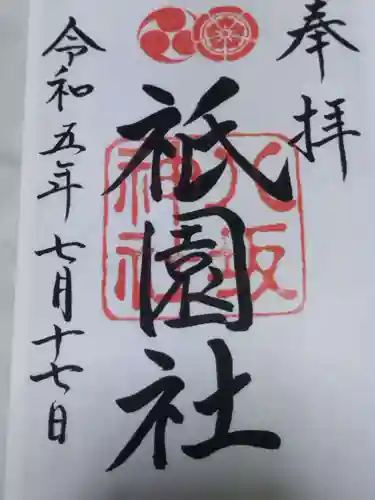 奉拝
八坂
神社
祇園社
令和五年七月十七日